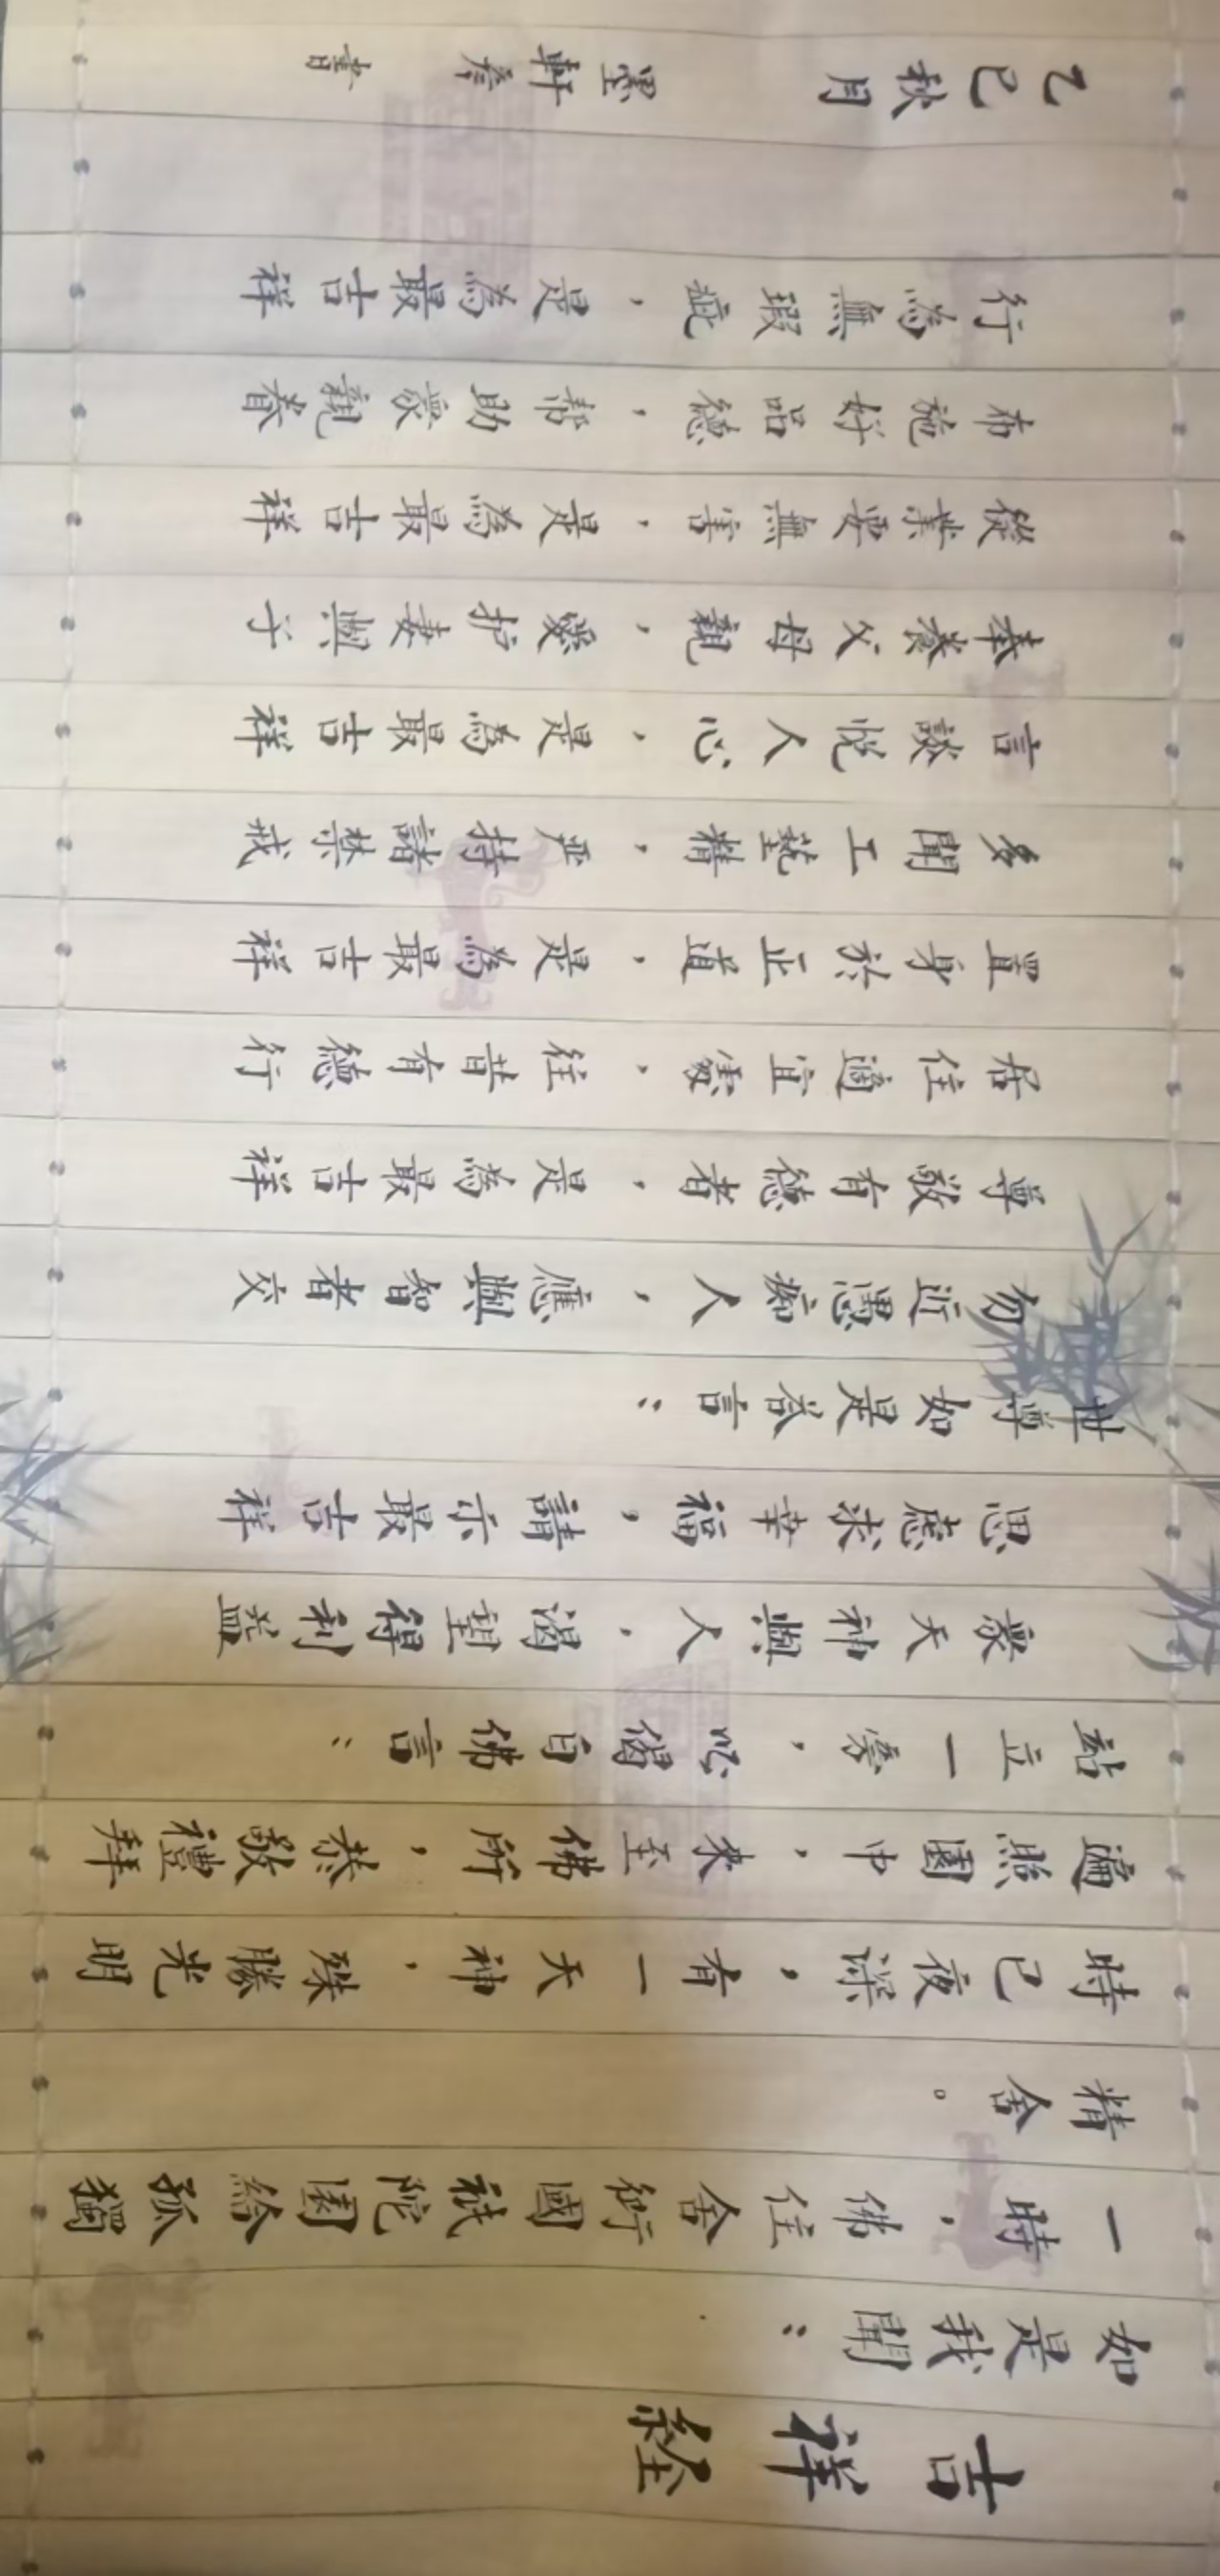 吉祥経
如是我聞：
一時，佛住舍衛國祇陀園給孤獨
精舍。
時已夜深，有一天神，殊勝光明
遍照園中，来至佛所，恭敬禮拜
站立一旁，以偈白佛言：
眾天神與人，渴望得利益
思慮求幸福，請示最吉祥
世尊如是答言：
勿近愚痴人，應與智者交
尊敬有德者，是為最吉祥
居住適宜處，往昔有德行
置身於正道，是為最吉祥
多聞工藝精，严持諸禁戒
言談悅人心，是為最吉祥
奉養父母親，愛护妻與子
從業要無害，是為最吉祥
布施好品德，幫助眾親眷
行為無瑕疵，是為最吉祥
乙巳秋月 墨軒 書